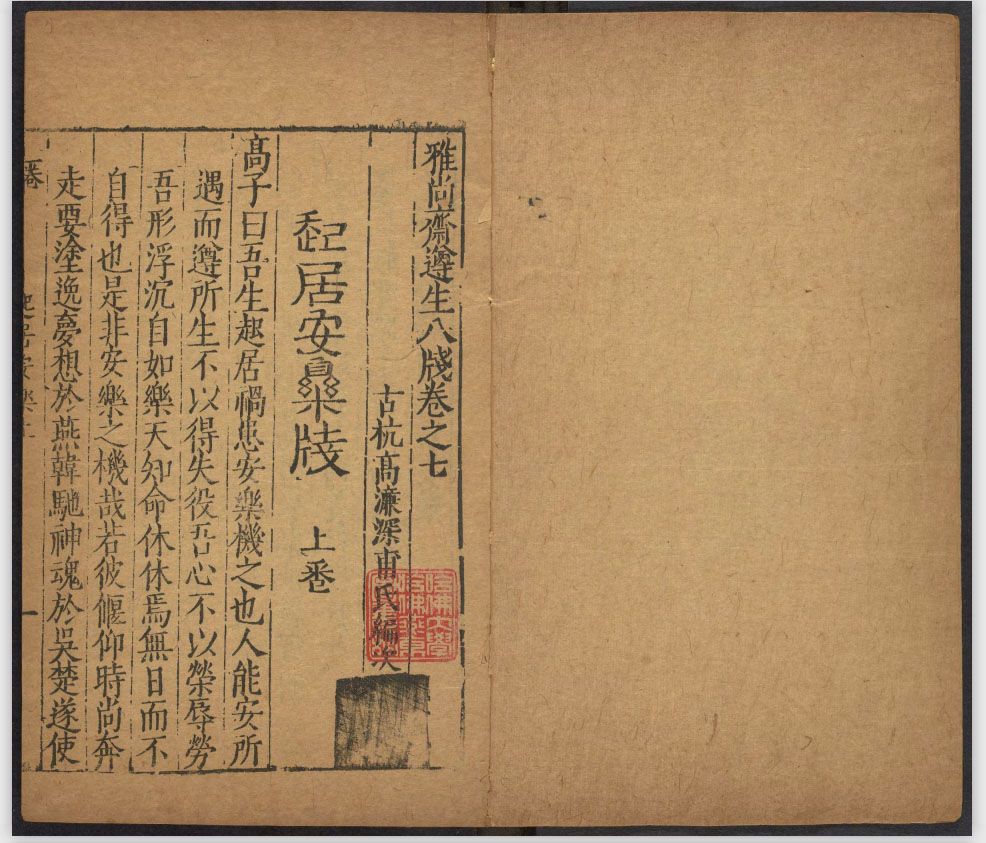 雅尚齋遵生八牋卷之七
古杭高濂深甫氏編次
起居安樂牋
上卷
高子曰吾生起居禍患安樂機之也人能安所
遇而遵所生不以得失役吾心不以榮辱勞
吾形浮沉自如樂天知命休休焉無日而不
自得也是非安樂之機哉若彼偃仰時尚奔
走要塗逸夢想於燕韓馳神魂於吳楚遂使
一